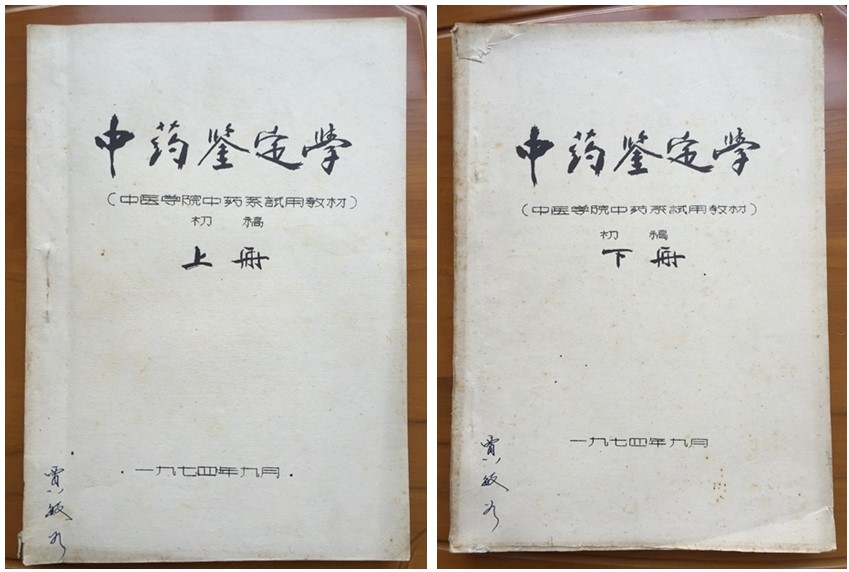 中药鉴定学
（中医学院中药系試用教材）
初稿
上册
一九七四年九月
贾敏
中药鉴定学
（中医学院中药系試用教材）
初稿
下册
一九七四年九月
贾敏